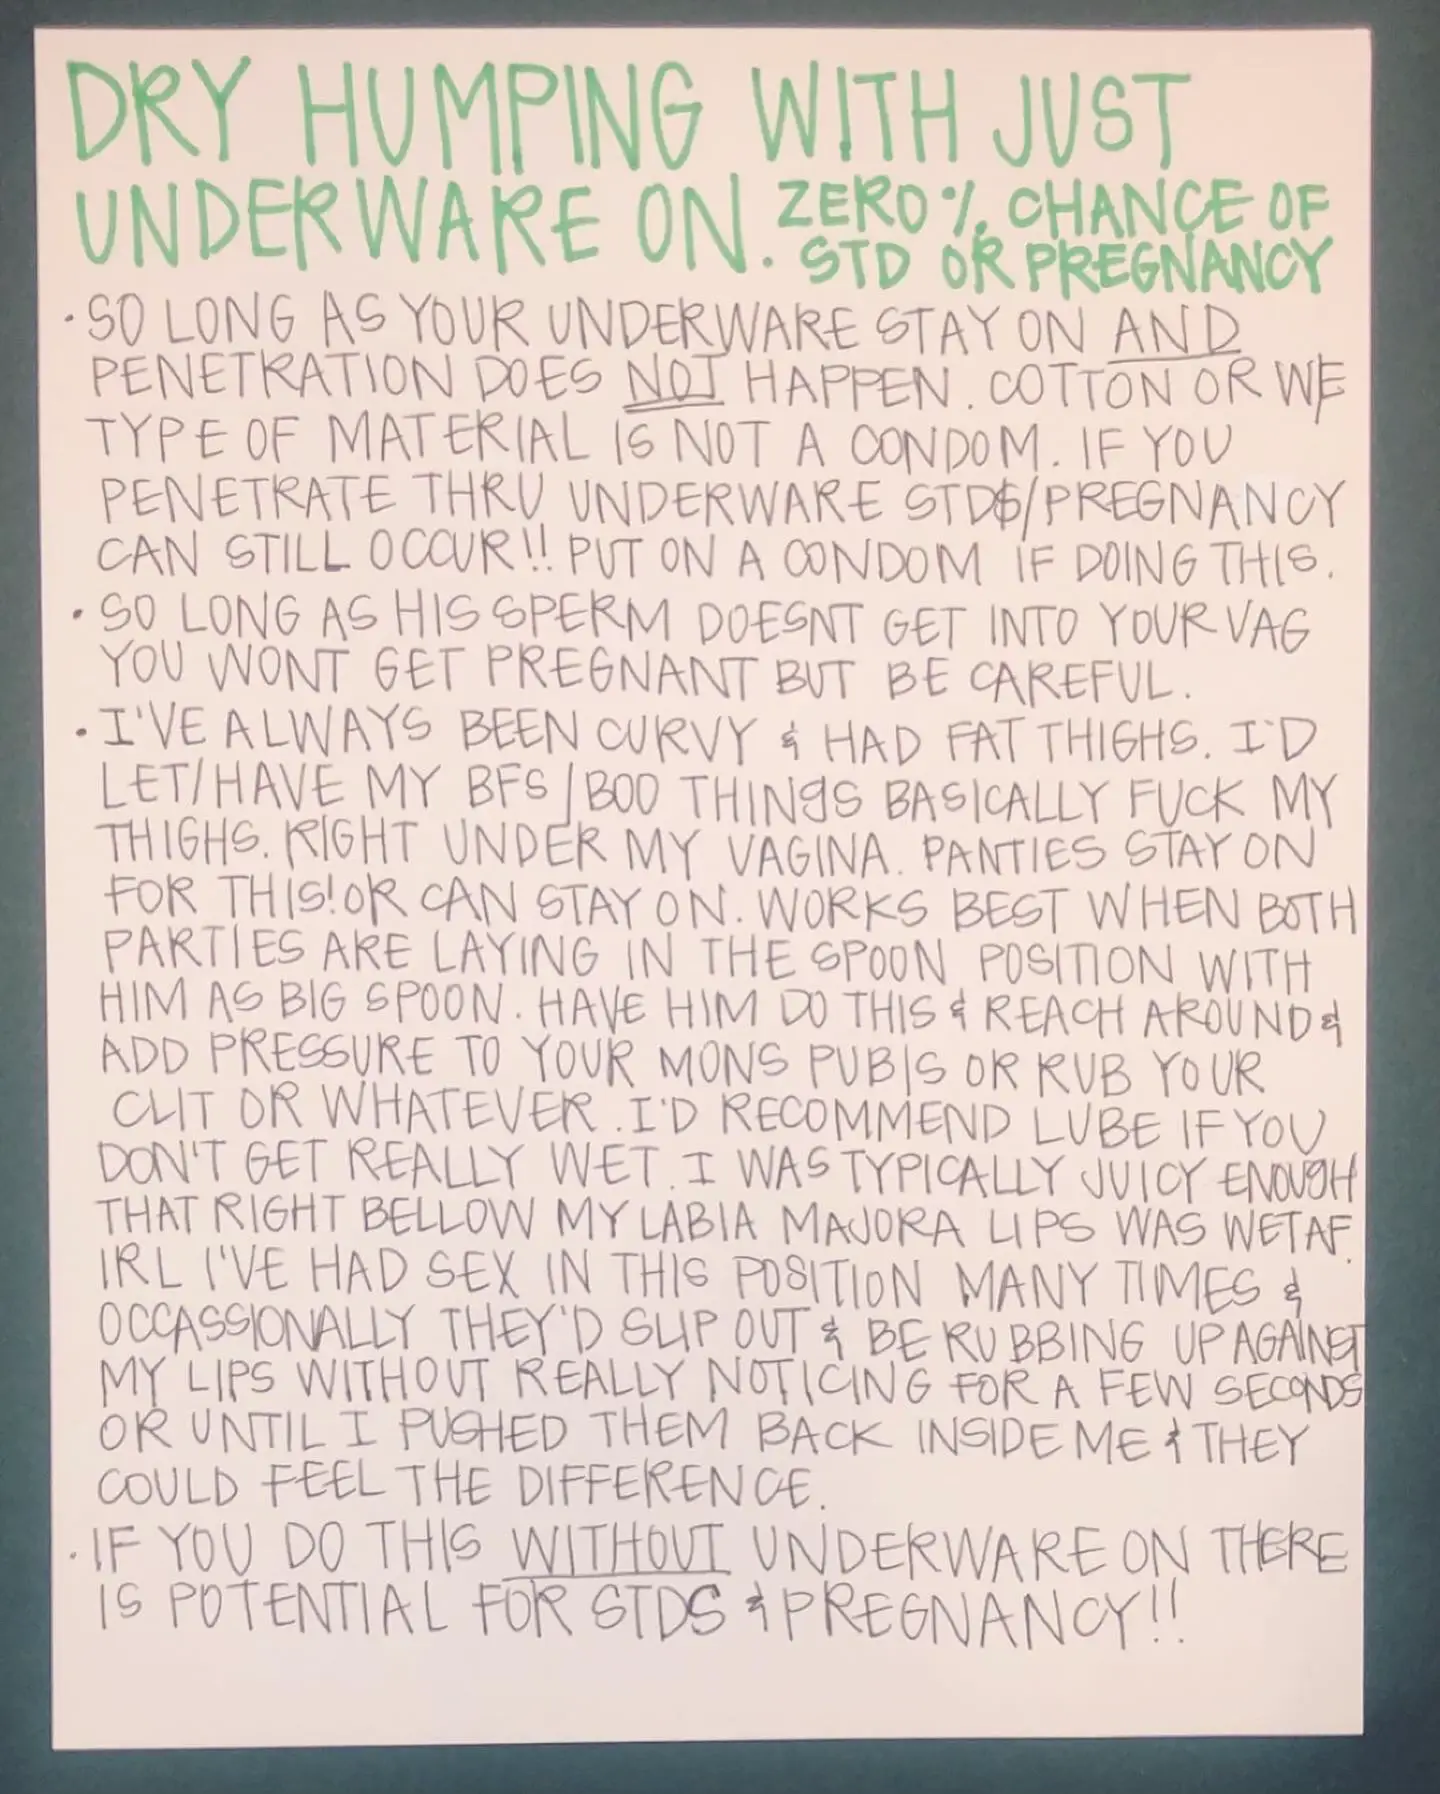 DRY HUMPING WITH JUST
UNDERWARE ON. ZERO % CHANCE OF
STD OR PREGNANCY
• SO LONG AS YOUR UNDERWARE STAY ON AND
PENETRATION DOES NOT HAPPEN. COTTON OR WE
TYPE OF MATERIAL IS NOT A CONDOM. IF YOU
PENETRATE THRU UNDERWARE STDS/PREGNANCY
CAN STILL OCCUR!! PUT ON A CONDOM IF DOING THIS.
• SO LONG AS HIS SPERM DOESNT GET INTO YOUR VAG
YOU WONT GET PREGNANT BUT BE CAREFUL.
• I'VE ALWAYS BEEN CURVY & HAD FAT THIGHS. I'D
LET/HAVE MY BFS/BOO THINgS BASICALLY FUCK MY
THIGHS. RIGHT UNDER MY VAGINA. PANTIES STAY ON
FOR THIS! OR CAN STAY ON. WORKS BEST WHEN BOTH
PARTIES ARE LAYING IN THE SPOON POSITION WITH
HIM AS BIG SPOON. HAVE HIM DO THIS & REACH AROUND &
ADD PRESSURE TO YOUR MONS PUBIS OR RUB YOUR
CLIT OR WHATEVER. I'D RECOMMEND LUBE IF YOU
DON'T GET REALLY WET. I WAS TYPICALLY JUICY ENOUGH
THAT RIGHT BELLOW MY LABIA MAJORA LIPS WAS WET AF.
IRL I'VE HAD SEX IN THIS POSITION MANY TIMES &
OCCASSIONALLY THEY'D SLIP OUT & BE RUBBING UP AGAINST
MY LIPS WITHOUT REALLY NOTICING FOR A FEW SECONDS
OR UNTIL I PUSHED THEM BACK INSIDE ME & THEY
COULD FEEL THE DIFFERENCE.
• IF YOU DO THIS WITHOUT UNDERWARE ON THERE
IS POTENTIAL FOR STDS & PREGNANCY!!